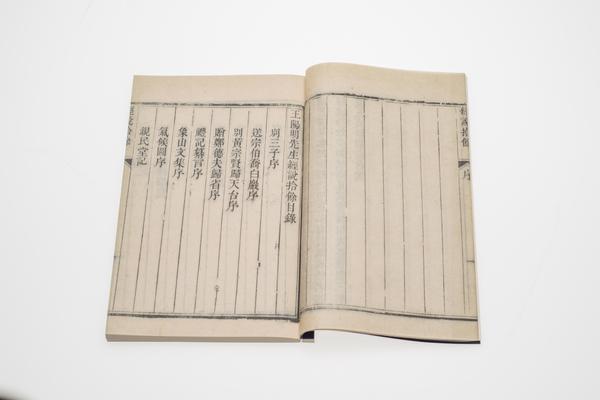 經說拾餘
序
王陽明先生經說拾餘目錄
別三子序
送宗伯喬白巖序
別黃宗賢歸天台序
贈鄭德夫歸省序
禮記纂言序
象山文集序
氣候圖序
親民堂記